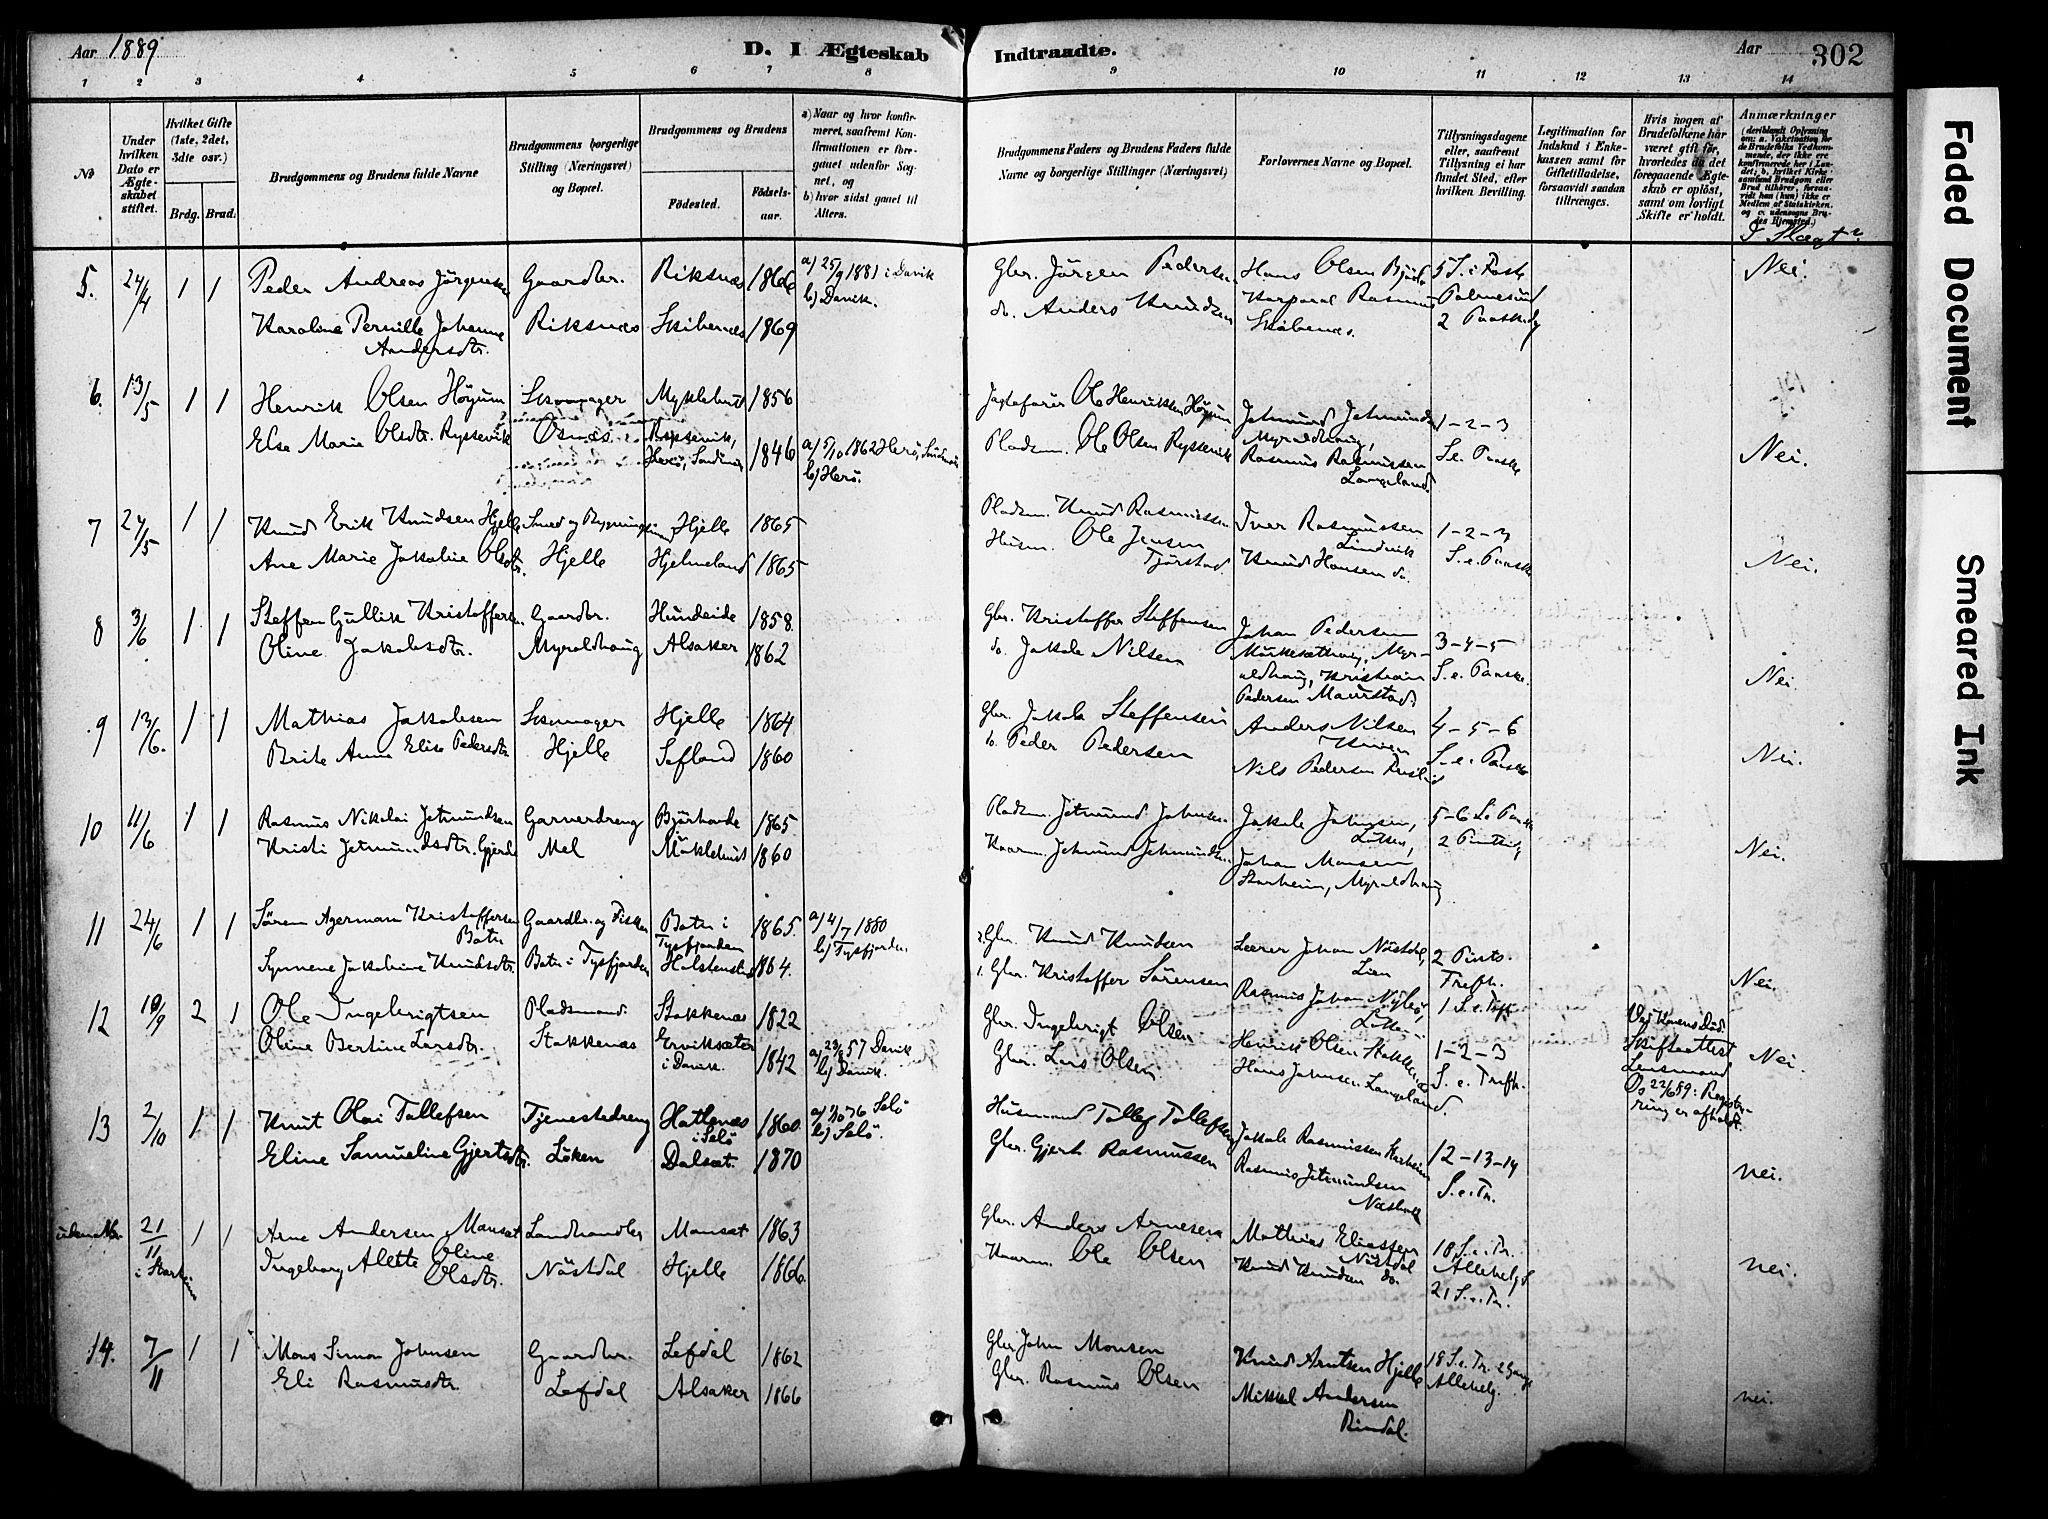 Aar 1889
D. I Ægteskab Indtraadte.
Aar 302
1 2 3 4 5 6 7 8 9 10 11 12 13 14
No
Under hvilken Dato er Ægteskabet stiftet.
Hvilket Gifte (1ste, 2det, 3die osv.)
Brdg. Brud.
Brudgommens og Brudens fulde Navne
Brudgommens borgerlige Stilling (Næringsvei) og Bopæl.
Brudgommens og Brudens
Födested.
Födselsaar.
a) Naar og hvor konfirmeret, saafremt Konfirmationen er foregaaet udenfor Sognet, og
b) hvor sidst gaaet til Alters.
Brudgommens Faders og Brudens Faders fulde Navne og borgerlige Stillinger (Næringsvei)
Forlovernes Navne og Bopæl.
Tillysningsdagene eller, saafremt Tillysning ei har fundet Sted, efter hvilken Bevilling.
Legitimation for Indskud i Enkekassen samt for Giftetilladelse, forsaavidt saadan tiltrænges.
Hvis nogen af Brudefolkene har været gift för, hvorledes da det foregaaende Ægteskab er oplöst, samt om lovligt Skifte er holdt.
Anmærkninger
I Slægt?
5. 24/4 1 1 Peder Andreas Jörgensen Gaardbr. Riksnæs 1866 a) 25/9 1881 i Davik b) Davik. Gbr. Jörgen Pedersen Hans Olsen 5 S. i Faste Nei.
Karoline Pernille Johanne Andersdtr. Riksnæs Skibenæs 1869 do. Anders Knudsen Korporal Rasmus Skibenæs. Palmesünd 2 Paaskedg
6. 13/5 1 1 Henrik Olsen Höyum Skomager Myklebust 1856 Jægtefører Ole Henriksen Höyum Jetmund Jetmundsen Myroldhaug, 1-2-3
Else Marie Olsdtr. Ryssevik Osnæs Ryssevik, Herö, Söndmör 1846 a) 5/10 1862 Herö, b) Herö. Pladsm. Ole Olsen Ryssevik Rasmus Rasmussen Langeland S.e. Paaske Nei.
7 24/5 1 1 Knud Erik Knudsen Hjelle Smed og Hjelle 1865 Pladsm. Knud Rasmussen Iver Rasmussen Lindvik 1-2-3
Ane Marie Jakobine Olsdtr. Hjelle Hjelmeland 1865 Husm. Ole Jensen Tjörstad. Knud Hansen do. S.e. Paaske Nei.
8 3/6 1 1 Steffen Gullik Kristoffersen Gaardbr. Hundeide 1858. Gbr. Kristoffer Steffensen Johan Pedersen 3-4-5
Oline Jakobsdtr. Myroldhaug Alsaker 1862 do. Jakob Nilsen Myroldhaug, Kristian Pedersen Maurstad S.e. Paaske. Nei.
9 13/6. 1 1 Mathias Jakobsen Skomager Hjelle 1864 Gbr. Jakob Steffensen Anders Nilsen 4-5-6
Brite Anne Elise Pedersdtr Hjelle Sefland 1860 do. Peder Pedersen Nils Pedersen S.e. Paaske Nei.
10 11/6 1 1 Rasmus Nikolai Jetmundsen Garverdreng 1865 Pladsm. Jetmund Johnsen Jakob Johnsen, Löken, 5-6 S.e. Paaske
Kristi Jetmundsdtr. Gjerde Mel Myklebust 1860 Kaarm. Jetmund Jetmundsen Johan Monsen Starheim, Myroldhaug 2 Nei.
11 24/6 1 1 Sören Agerman Kristoffersen Botn Gaardbr. og Fisker Botn i Tysfjorden 1865. a) 4/7 1880 b) Tysfjorden 2. Gbr. Knud Knudsen Lærer Johan Nöstdal, Lien 2 Pints.
Synnene Jakobine Knudsdtr. Botn i Tysfjorden 1864. 1. Gbr. Kristoffer Sörensen Rasmus Johan Löken Trefh. 1 S.e. Nei.
12 10/9 2 1 Ole Ingebrigtsen Pladsmand Stokkenæs 1822 Gbr. Ingebrigt Olsen Henrik Olsen Stokkenæs 1-2-3 Ved Konens Död. Skifteattest
Oline Bertine Larsdtr. Stokkenæs Erviksæter i Davik. 1842 a) 57 Davik b) Davik. Gbr. Lars Olsen. Hans Johnsen Langeland. S.e. Trefh. Lensmand Os 22/6 89: Registrering er afholdt. Nei.
13 2/10 1 1 Knut Olai Tollefsen Tjenestedreng Hatlenæs i Selö 1860. a) 1/10 76 Selö b) Selö. Husmand Tollef Tollefsen Jakob Rasmussen Starheim 12-13-14
Eline Samueline Gjertsdtr. Löken Dalsæt. 1870 Gbr. Gjert Rasmussen Rasmus Jetmundsen S.e. Tr. nei.
uden No. 21/11 i Starheim 1 1 Arne Andersen Monsæt Landhandler Monsæt 1863 Gbr. Anders Arnesen Mathias Eliassen Nöstdal 18 S.e. Tr.
Ingeborg Alette Oline Olsdtr. Nöstdal Hjelle 1866. Kaarm. Ole Olsen Knud Knudsen do. Allehelg S. 21 S.e. Tr. nei.
14. 7/11 1 1 Mons Simon Johnsen Gaardbr. Lefdal 1862 Gbr John Monsen Knud Arntsen Hjelle 18 S.e. Tr. 2 Gang
Eli Rasmusdtr. Lefdal Alsaker 1866 Gbr. Rasmus Olsen Mikkel Andersen Rimdal. Allehelg. nei.
Faded Document
Smeared Ink